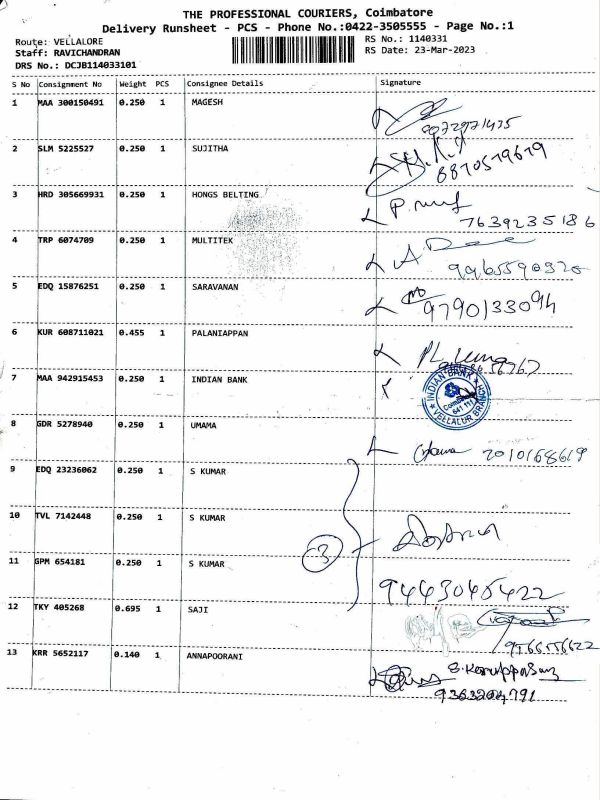 THE PROFESSIONAL COURIERS, Coimbatore
Delivery Runsheet - PCS - Phone No.:0422-3505555 - Page No.:1
Route: VELLALORE
RS No.: 1140331
Staff: RAVICHANDRAN
RS Date: 23-Mar-2023
DRS No.: DCJB114033101
S No Consignment No Weight PCS Consignee Details Signature
1 MAA 300150491 0.250 1 MAGESH
2 SLM 5225527 0.250 1 SUJITHA
8870579679
3 HRD 305669931 0.250 1 HONGS BELTING
7639235186
4 TRP 6074709 0.250 1 MULTITEK
9965590320
5 EDQ 15876251 0.250 1 SARAVANAN
9790133094
6 KUR 608711021 0.455 1 PALANIAPPAN
7 MAA 942915453 0.250 1 INDIAN BANK
INDIAN BANK
641 111
VELLALUR BRANCH
8 GDR 5278940 0.250 1 UMAMA
9 EDQ 23236062 0.250 1 S KUMAR
10 TVL 7142448 0.250 1 S KUMAR
3
11 GPM 654181 0.250 1 S KUMAR
9443045422
12 TKY 405268 0.695 1 SAJI
9566556622
13 KRR 5652117 0.140 1 ANNAPOORANI
9363204791